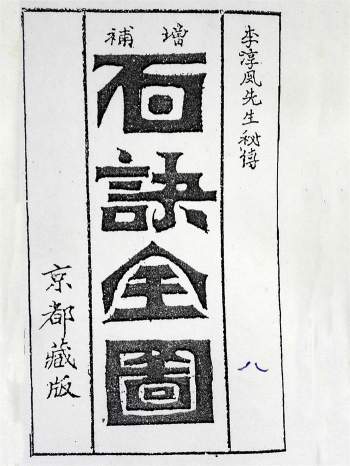 李淳风先生秘傳
八
增補
石訣全圖
京都藏版